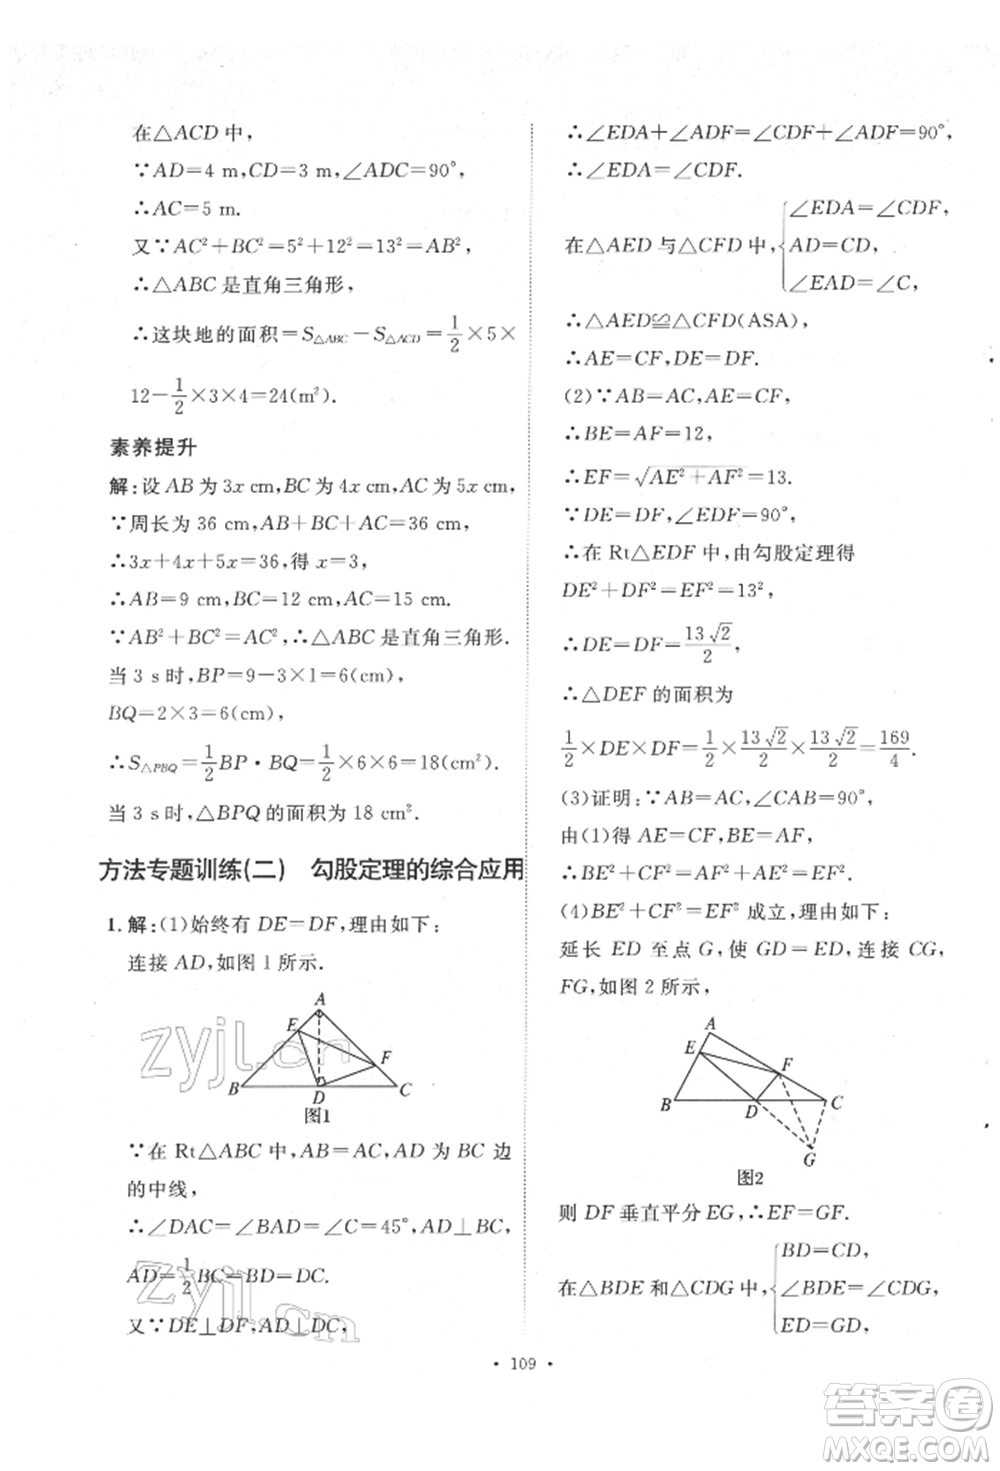 在△ACD 中,
∵AD=4 m,CD=3 m,∠ADC=90°,
∴AC=5 m.
又∵AC²+BC²=5²+12²=13²=AB²,
∴△ABC 是直角三角形,
∴这块地的面积=S△ABC-S△ACD=1/2×5×
12-1/2×3×4=24(m²).
素养提升
解:设 AB 为 3x cm,BC 为 4x cm,AC 为 5x cm,
∵周长为 36 cm,AB+BC+AC=36 cm,
∴3x+4x+5x=36,得 x=3.
∴AB=9 cm,BC=12 cm,AC=15 cm.
∵AB²+BC²=AC²,∴△ABC 是直角三角形.
当 3 s 时,BP=9-3×1=6(cm),
BQ=2×3=6(cm),
∴S△PBQ=1/2BP·BQ=1/2×6×6=18(cm²).
当 3 s 时,△BPQ 的面积为 18 cm².
方法专题训练(二) 勾股定理的综合应用
1. 解:(1)始终有 DE=DF,理由如下:
连接 AD,如图 1 所示.
A
E
F
B
D
C
图1
∵在 Rt△ABC 中,AB=AC,AD 为 BC 边
的中线,
∴∠DAC=∠BAD=∠C=45°,AD⊥BC,
AD=1/2BC=BD=DC.
又∵DE⊥DF,AD⊥DC,
∴∠EDA+∠ADF=∠CDF+∠ADF=90°,
∴∠EDA=∠CDF.
在△AED 与△CFD 中,{∠EDA=∠CDF,
AD=CD,
∠EAD=∠C,
∴△AED≌△CFD(ASA),
∴AE=CF,DE=DF.
(2)∵AB=AC,AE=CF,
∴BE=AF=12,
∴EF=√(AE²+AF²)=13.
∵DE=DF,∠EDF=90°,
∴在 Rt△EDF 中,由勾股定理得
DE²+DF²=EF²=13²,
∴DE=DF=13√2/2,
∴△DEF 的面积为
1/2×DE×DF=1/2×13√2/2×13√2/2=169/4.
(3)证明:∵AB=AC,∠CAB=90°,
由(1)得 AE=CF,BE=AF,
∴BE²+CF²=AF²+AE²=EF².
(4)BE²+CF²=EF² 成立,理由如下:
延长 ED 至点 G,使 GD=ED,连接 CG,
FG,如图 2 所示,
A
E
F
B
D
C
G
图2
则 DF 垂直平分 EG,∴EF=GF.
在△BDE 和△CDG 中,{BD=CD,
∠BDE=∠CDG,
ED=GD,
· 109 ·
zyjl.cn
zyjl.cn
答案卷
MXQE.COM